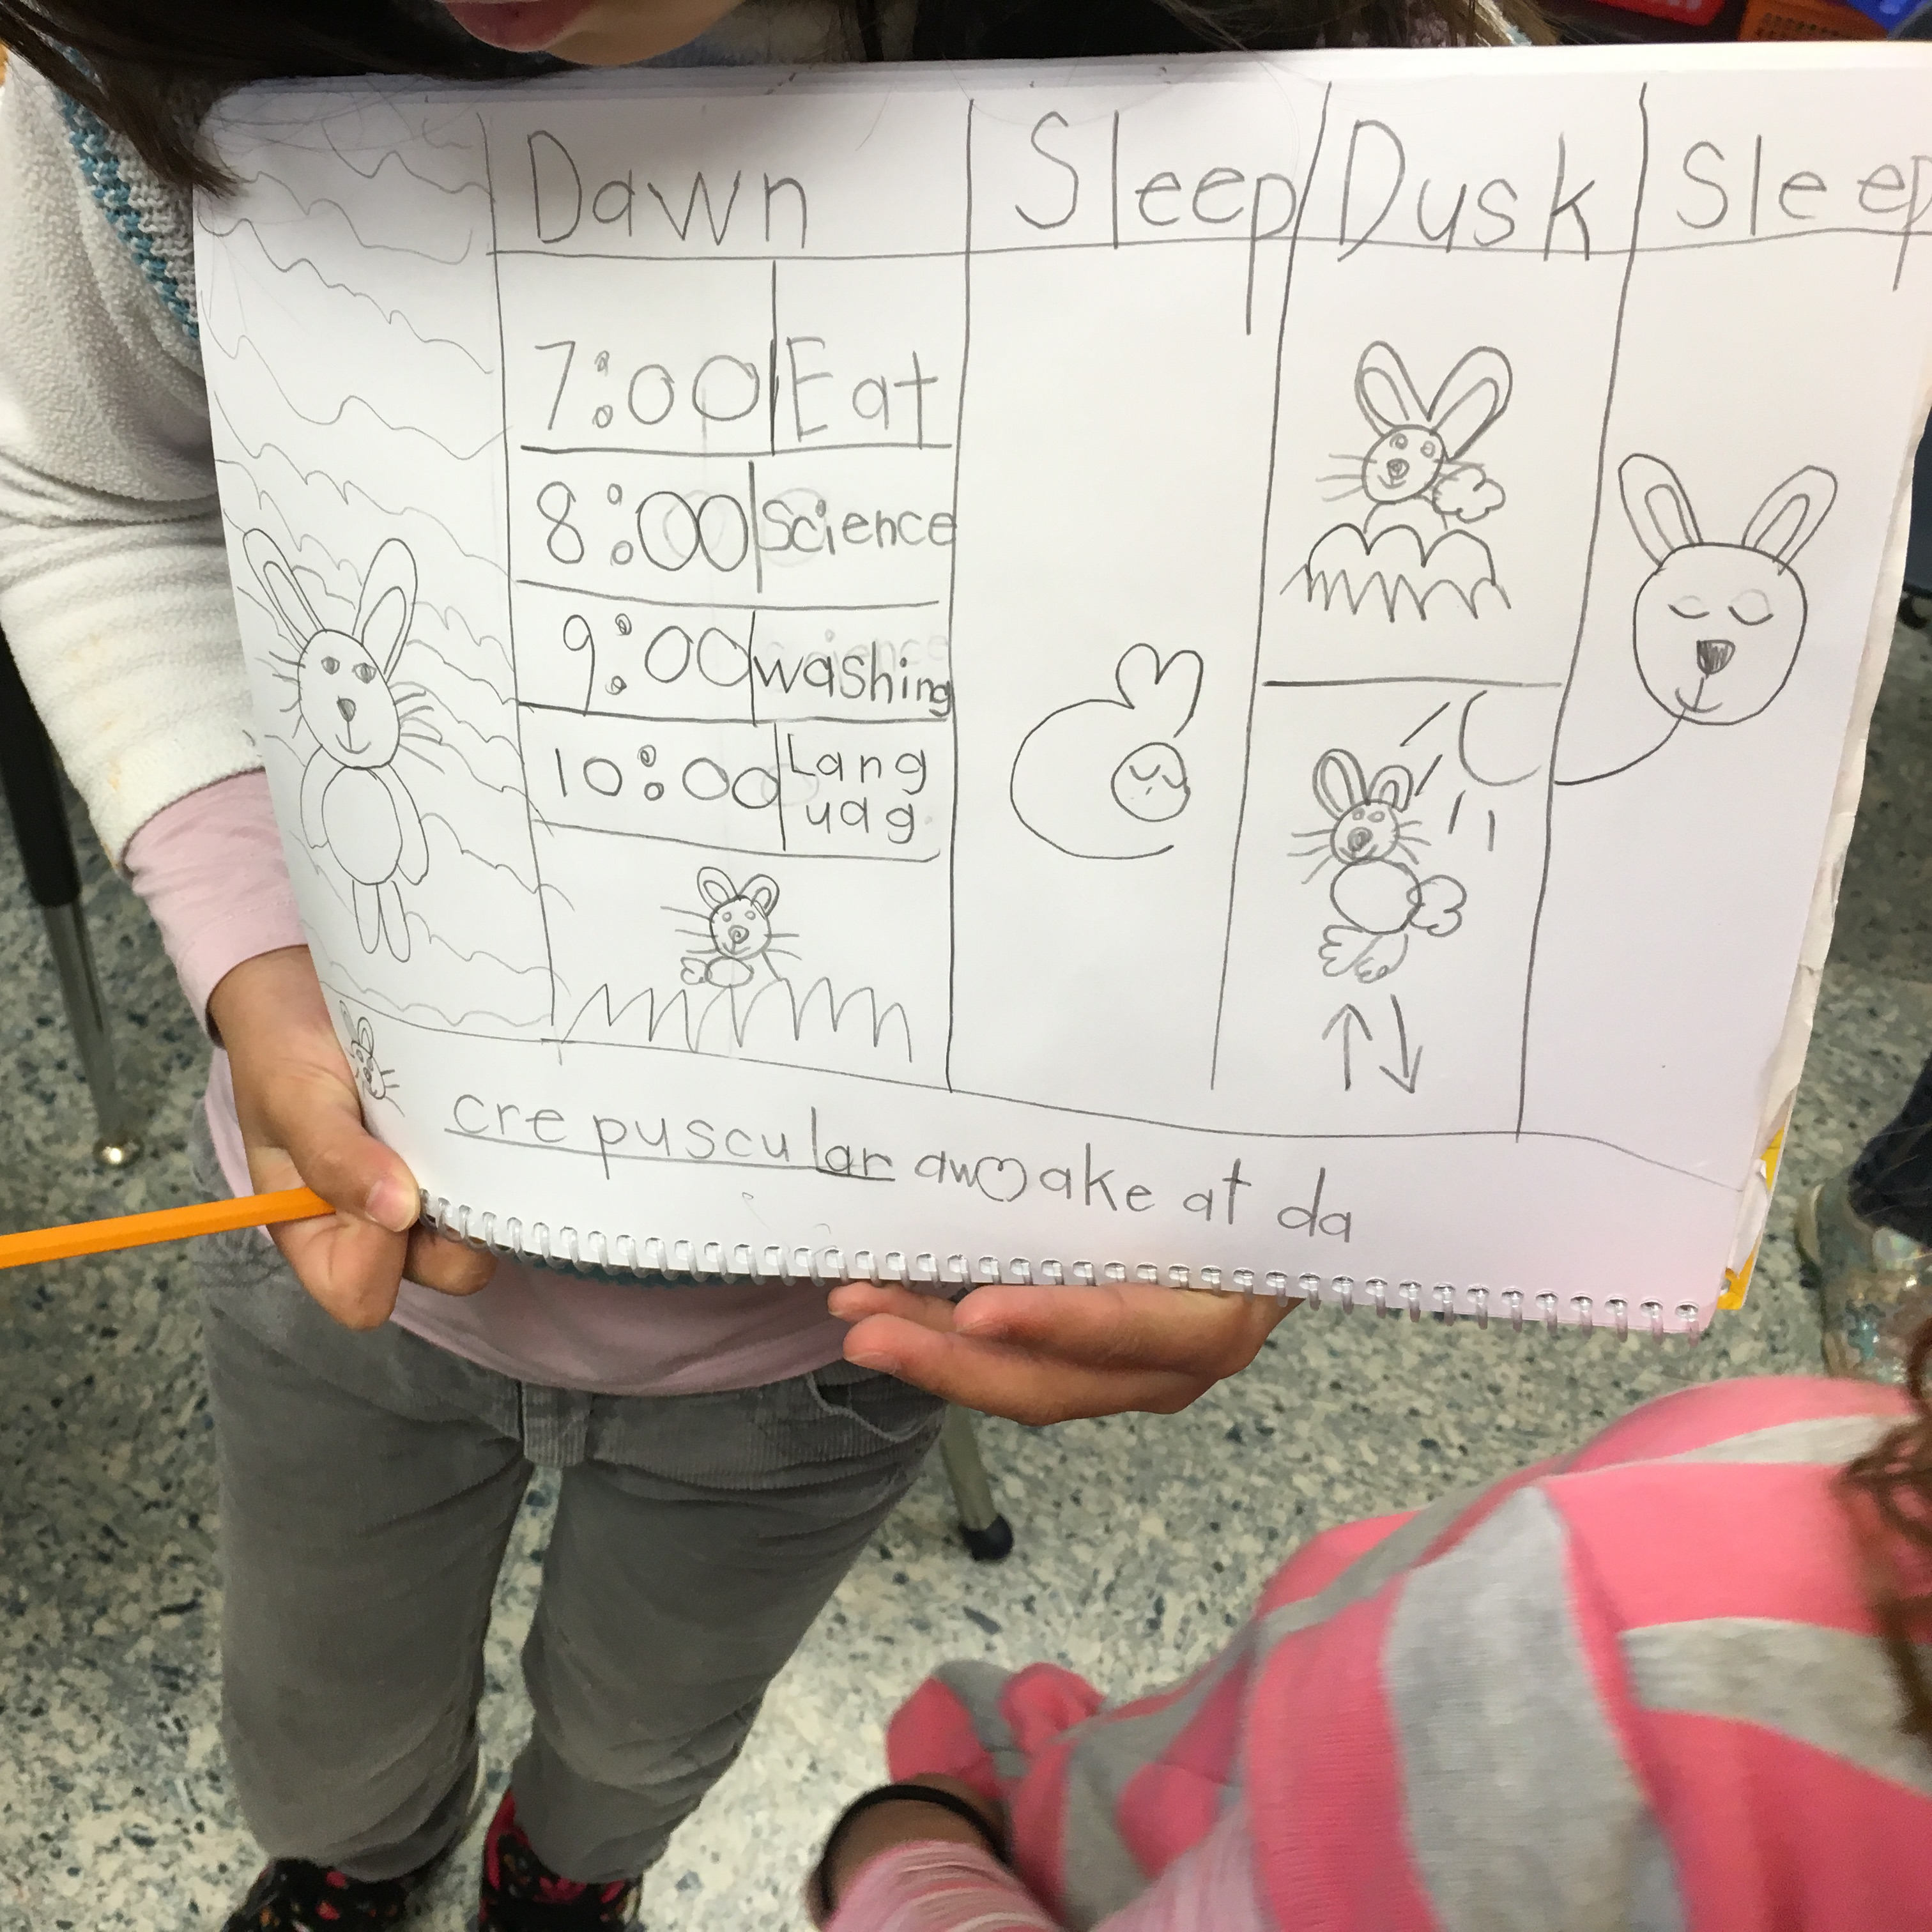 Dawn Sleep Dusk Sleep
7:00 Eat
8:00 Science
9:00 washing
10:00 Lang
uag
crepuscular awake at da